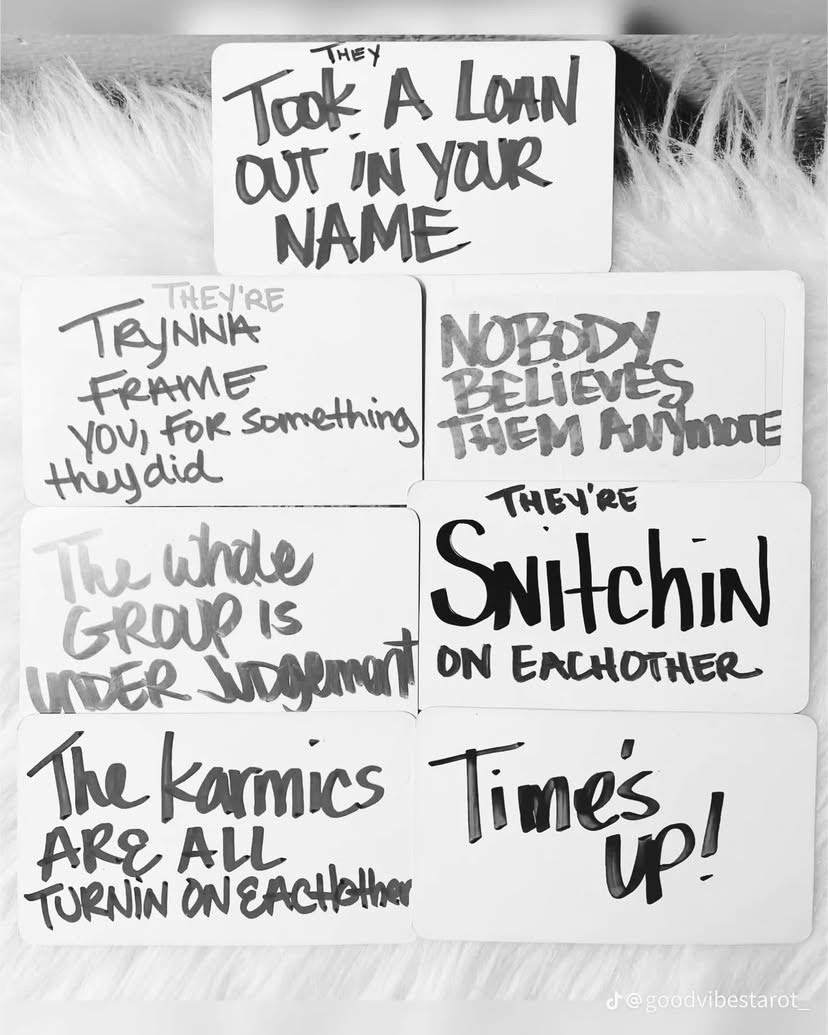 THEY
TOOK A LOAN
OUT IN YOUR
NAME
THEY'RE
TRYNNA
FRAME
YOU, FOR something
they did
NOBODY
BELIEVES
THEM ANYmorE
The whole
GROUP IS
UNDER JUDgement
THEY'RE
SNitchiN
ON EACHOTHER
The Karmics
ARE ALL
TURNIN ON EACHOther
Time's
UP!
@goodvibestarot_